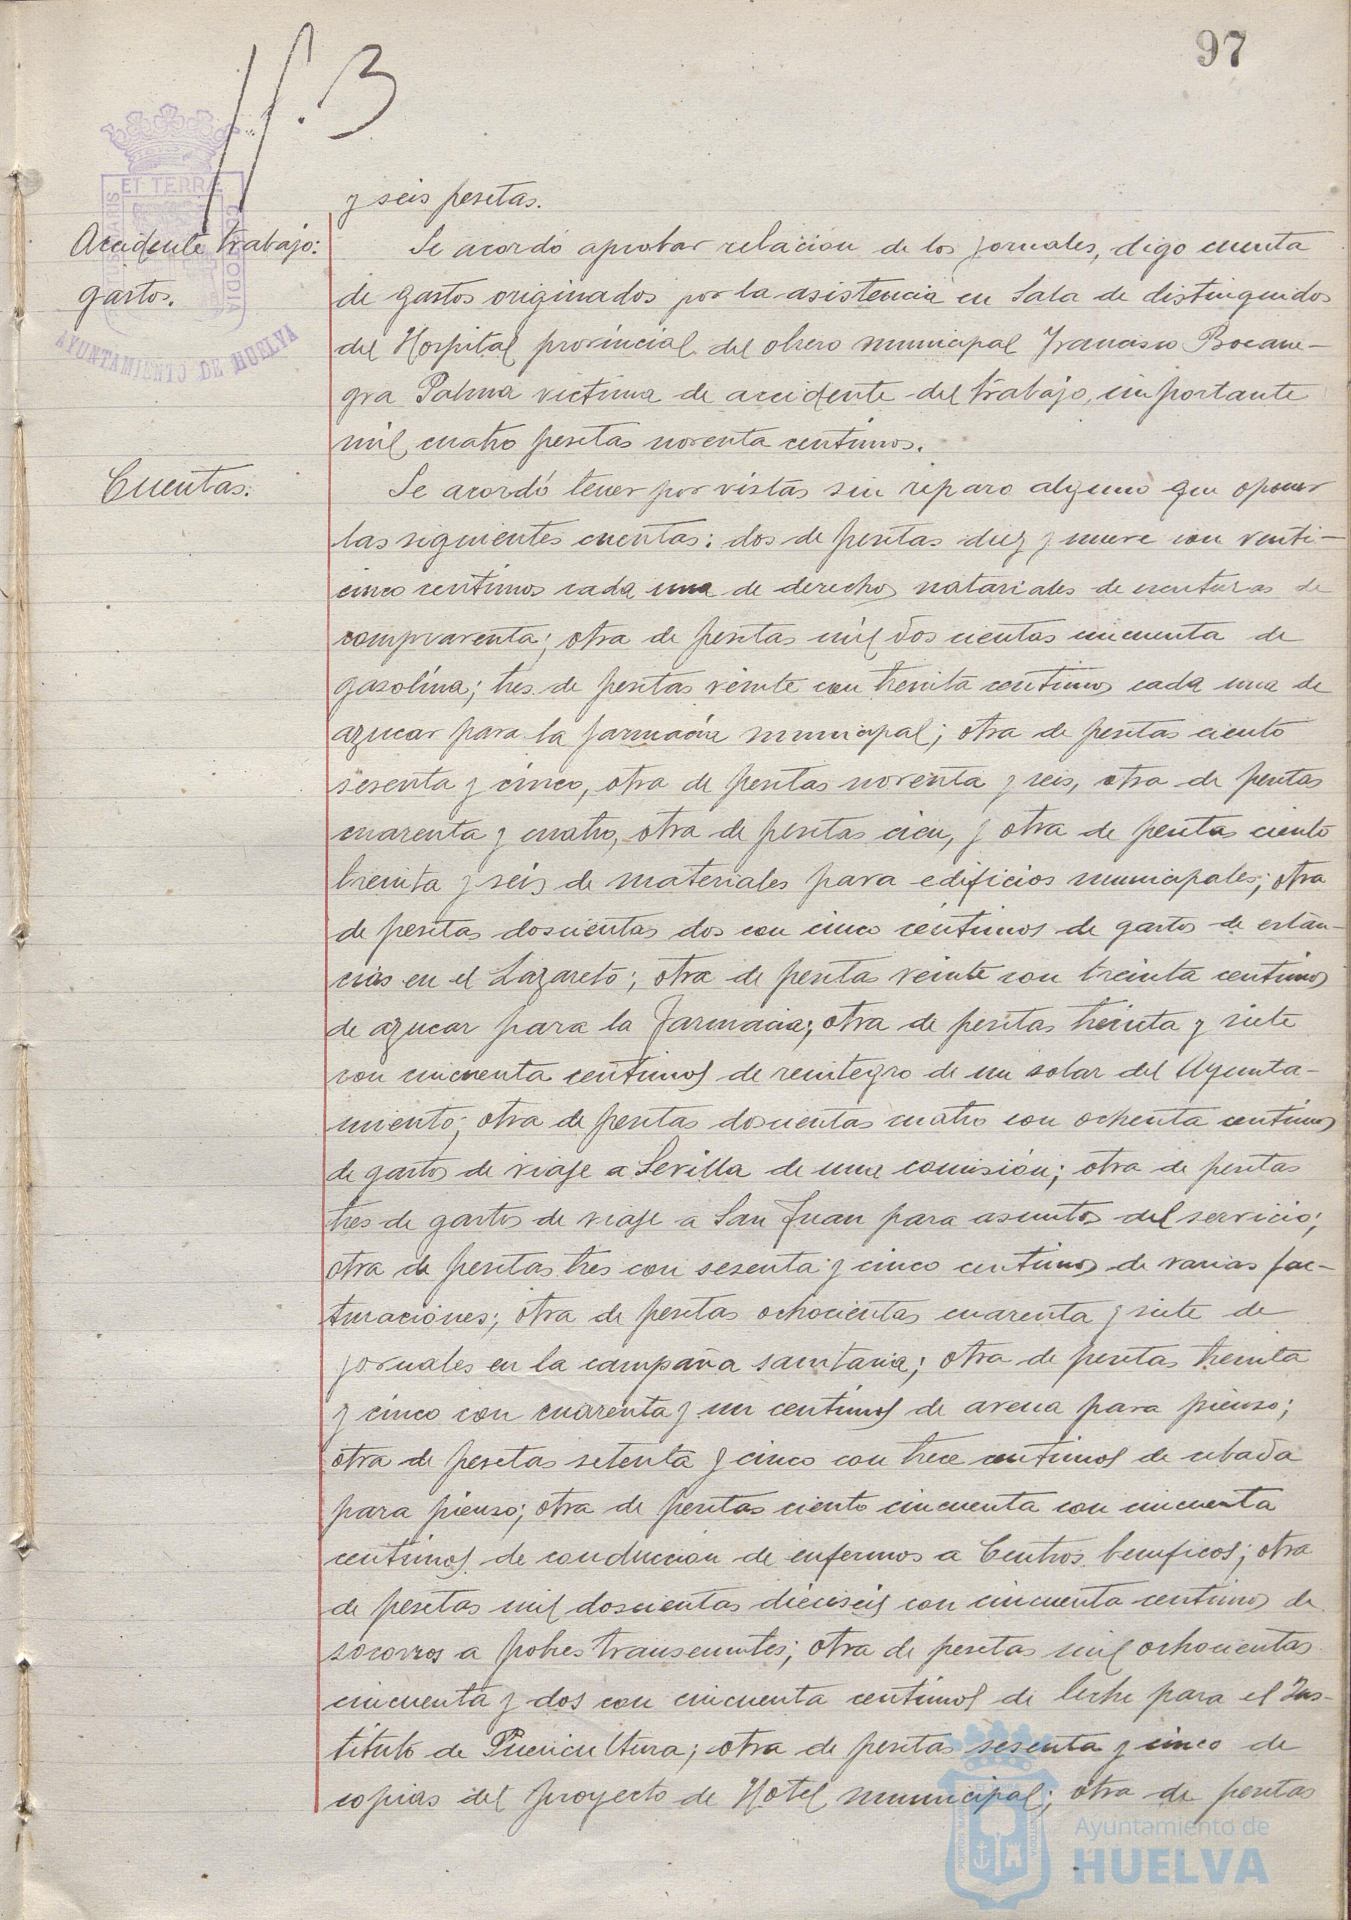 97
ET TERRÆ
CUSTODIA
AYUNTAMIENTO DE HUELVA
y seis pesetas.
Accidente trabajo:
gastos.
Se acordó aprobar relación de los jornales, digo cuenta
de gastos originados por la asistencia en Sala de distinguidos
del Hospital provincial del obrero municipal Francisco Bocane-
gra Palma victima de accidente del trabajo, importante
mil cuatro pesetas noventa centimos.
Cuentas.
Se acordó tener por vistas sin reparo alguno que oponer
las siguientes cuentas: dos de pesetas diez y nueve con venti-
cinco centimos cada una de derechos notariales de escrituras de
compraventa; otra de pesetas mil doscientas cincuenta de
gasolina; tres de pesetas veinte con treinta centimos cada una de
azucar para la farmacia municipal; otra de pesetas ciento
sesenta y cinco, otra de pesetas noventa y seis, otra de pesetas
cuarenta y cuatro, otra de pesetas cien, y otra de pesetas ciento
treinta y seis de materiales para edificios municipales; otra
de pesetas doscientas dos con cinco céntimos de gastos de están-
cias en el Lazareto; otra de pesetas veinte con treinta centimos
de azucar para la Farmacia; otra de pesetas treinta y siete
con cincuenta centimos de reintegro de un solar del Ayunta-
miento; otra de pesetas doscientas cuatro con ochenta centimos
de gastos de viaje a Sevilla de una comisión; otra de pesetas
tres de gastos de viaje a San Juan para asuntos del servicio;
otra de pesetas tres con sesenta y cinco centimos de varias fac-
turaciones; otra de pesetas ochocientas cuarenta y siete de
jornales en la campaña sanitaria; otra de pesetas treinta
y cinco con cuarenta y un centimos de avena para pienso;
otra de pesetas setenta y cinco con trece centimos de cebada
para pienso; otra de pesetas ciento cincuenta con cincuenta
centimos de conducción de enfermos a Centros beneficos; otra
de pesetas mil doscientas dieciseis con cincuenta centimos de
socorros a pobres transeuntes; otra de pesetas mil ochocientas
cincuenta y dos con cincuenta centimos de leche para el Ins-
tituto de Puericultura; otra de pesetas sesenta y cinco de
copias del proyecto de Hotel municipal; otra de pesetas
Ayuntamiento de
HUELVA